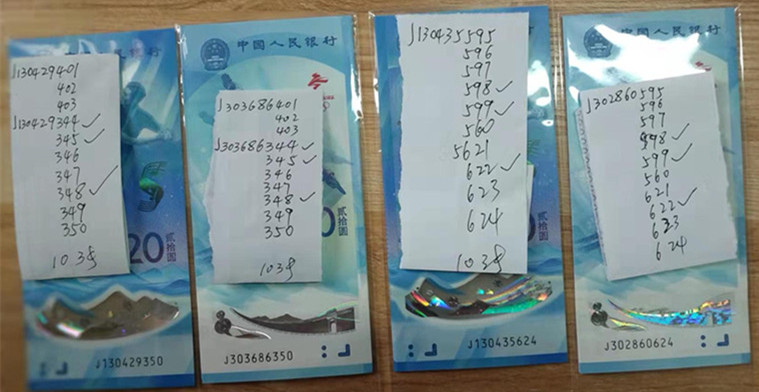 中国人民银行
J130429401
402
403
J130429344 ✓
345 ✓
346
347
348 ✓
349
350
10张
20
贰拾圆
J130429350
中国人民银行
J303686401
402
403
J303686344 ✓
345 ✓
346
347
348 ✓
349
350
10张
0
贰拾圆
J303686350
J130435595
596
597
598 ✓
599 ✓
560
5621
622 ✓
623
624
10张
J130435624
中国人民银行
J302860595
596
597
598 ✓
599 ✓
560
621
622 ✓
623
624
J302860624